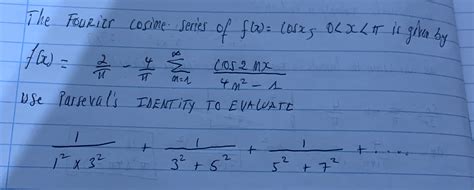 The FOURIER cosine series of f(x) = cosx, 0<x<π is given by
f(x) = 2/π - 4/π ∑_{n=1}^{∞} cos2nx / 4n² - 1
USE Parseval's IDENTITY TO EVALUATE
1/1² x 3² + 1/3² + 5² + 1/5² + 7² + .....